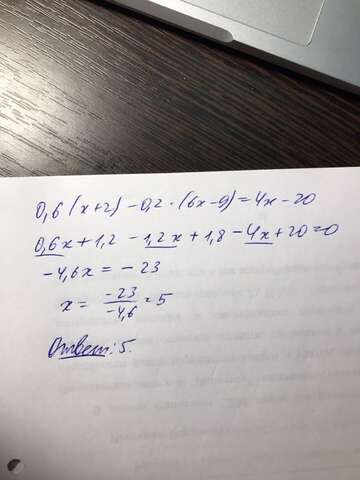 0,6(x+2)-0,2·(6x-9)=4x-20
0,6x+1,2-1,2x+1,8-4x+20=0
-4,6x=-23
x=-23/-4,6=5
Ответ: 5.